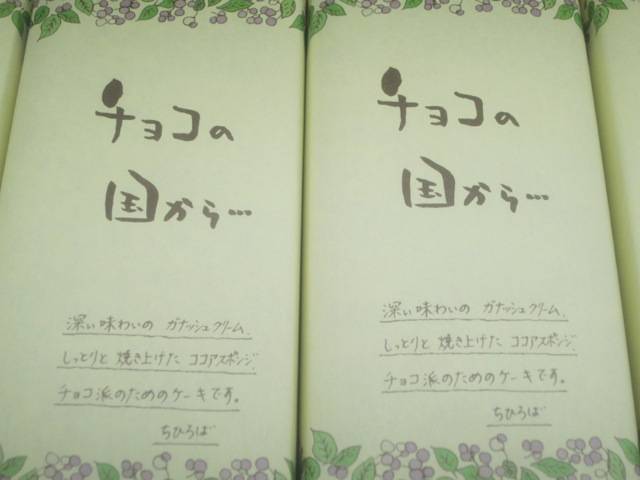 チョコの
国から…
深い味わいの ガナッシュクリーム、
しっとりと 焼き上げた ココアスポンジ、
チョコ派のためのケーキです。
ちひろば
チョコの
国から…
深い味わいの ガナッシュクリーム、
しっとりと 焼き上げた ココアスポンジ、
チョコ派のためのケーキです。
ちひろば